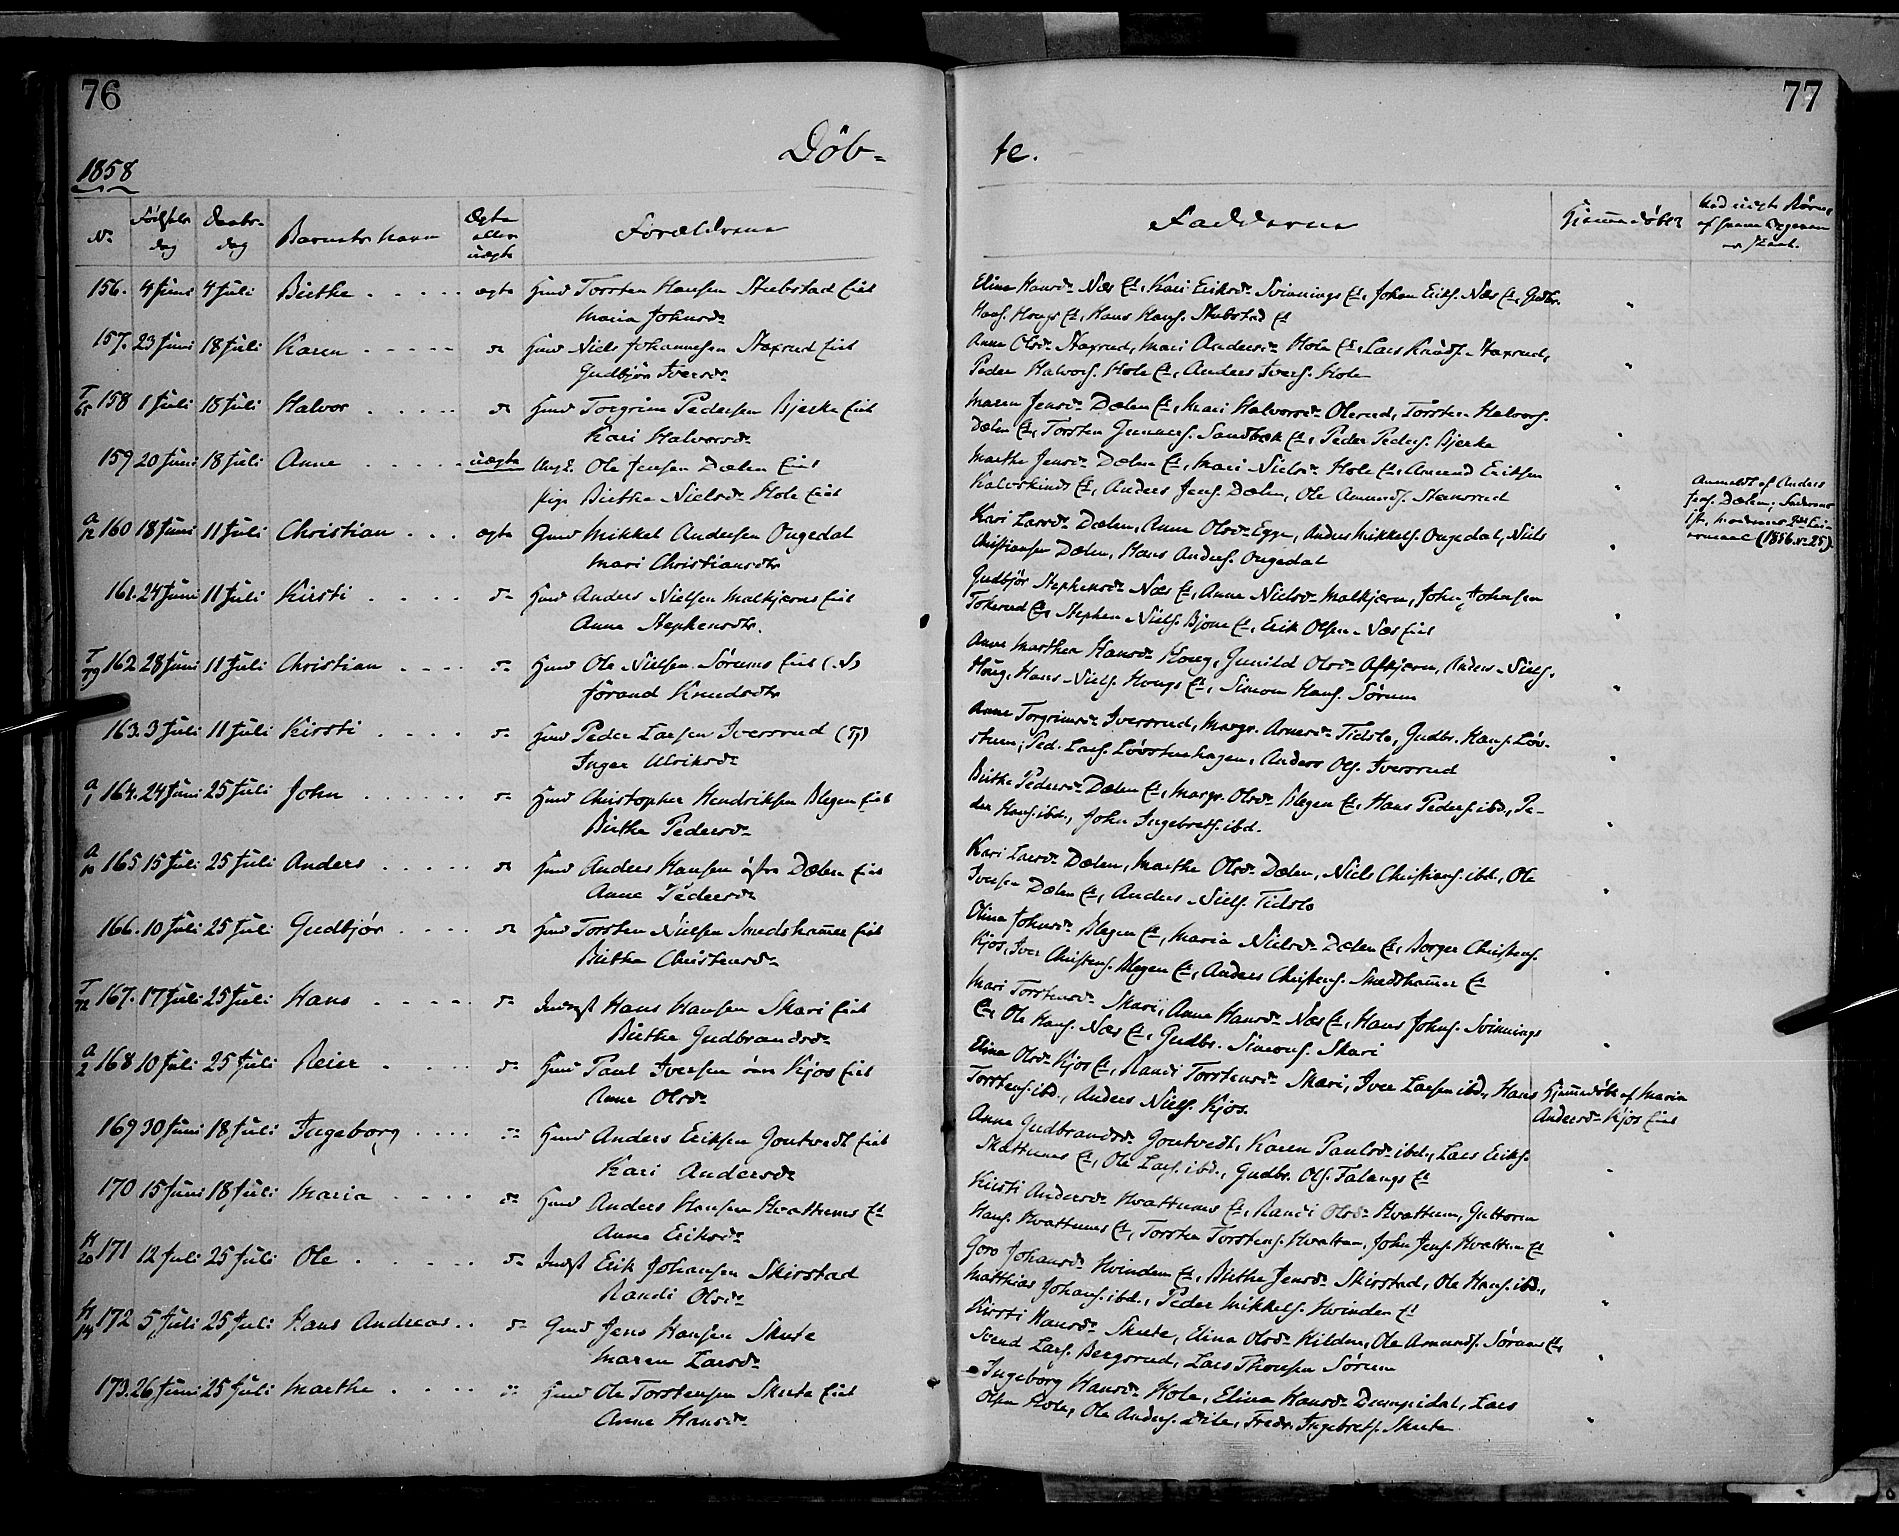 76
77
Döb-
te.
1858
No
Fødsels dag
Daabs dag
Barnets Navn
Ægte eller uægte
Forældrene
Fadderne
Hjemmedøbt
156. 4 Juni 4 Juli Birthe . . . . . ægte Hmd Torsten Hansen Stubstad Eiet
Maria Johnsdr
Eline Hansdr Næs Et, Kari Eriksdr Svinnings Et, Johan Eriks. Næs Et, Gudbr.
Hans. Hougs Et, Hans Hans. Stubstad Et
157. 23 Juni 18 Juli Karen . . . . . do Hmd Niels Johannesen Staxrud Eiet
Gudbjør Iversdr
Anne Olsdr Staxrud, Mari Andersdr Hole Et, Lars Knuds. Staxrud,
Peder Halvors. Hole Et, Anders Ivers. Hole
158 1 Juli 18 Juli Halvor . . . . . do Hmd Torgrim Pedersen Bjerke Eiet
Kari Halvorsdr
Maren Jensdr Dælen Et, Mari Halvorsdr Olsrud, Torsten Halvors.
Dælen Et, Torsten Gunners. Sandbæk Et, Peder Peders. Bjerke
159 20 Juni 18 Juli Anne . . . . . uægte Ungk. Ole Jensen Dælen Eiet
Pige Birthe Nielsdr Hole Eiet
Marthe Jensdr Dælen Et, Mari Nielsdr Hole Et, Amund Eriksen
Kalvskinds Et, Anders Jens. Dælen, Ole Amunds. Stensrud
Anmeldt af Anders
Jens. Dælen;
(1856 No 25)
160 18 Juni 11 Juli Christian . . . ægte Gmd Mikkel Andersen Ongedal
Mari Christiansdtr
Kari Larsdr Dælen, Anne Olsdr Egge, Anders Mikkels. Ongedal, Niels
Christiansen Dælen, Hans Anders. Ongedal
161. 24 Juni 11 Juli Kirsti . . . . do Hmd Anders Nielsen Malkjerns Eiet
Anne Stephensdtr.
Gudbjør Stephensdr Næs Et, Anne Nielsdr Malkjern, John Johnsen
Tokerud Et, Stephen Niels. Bjone Et, Erik Olsen Næs Eiet
162 28 Juni 11 Juli Christian . . . . do Hmd Ole Nielsen Sørums Eiet
Jörand Knudsdtr
Anne Marthea Hansdr Houg, Gunild Olsdr Askjern, Anders Niels.
Houg, Hans Niels. Hougs Et, Simon Hans. Sørum
163. 3 Juli 11 Juli Kirsti . . . . do Hmd Peder Larsen Iversrud
Inger Ulriksdr
Anne Torgrimsdr Iversrud, Margr. Arnesdr Tidslo, Gudbr. Hans. Løv-
stuen, Ped. Lars. Løvstuehagen, Anders Ols. Iversrud
164. 24 Juni 25 Juli John . . . . . . do Hmd Christopher Hendriksen Blegen Eiet
Birthe Pedersdr
Birthe Pedersdr Dælen Et, Margr. Olsdr Blegen Et, Hans Peders. ibd., Pe-
der Hans. ibd., John Ingebrets. ibd.
165 15 Juli 25 Juli Anders . . . . . do Hmd Anders Hansen østre Dælen Eiet
Anne Pedersdr
Kari Larsdr Dælen, Marthe Olsdr Dælen, Niels Christians. ibd., Ole
Iversen Dælen Et, Anders Niels. Tidslo
166. 10 Juli 25 Juli Gudbjør . . . . do Hmd Torsten Nielsen Smedshamer Eiet
Birthe Christensdr
Olina Johnsdr Blegen Et, Maria Nielsdr Dælen Et, Borger Christens.
Kjos, Iver Christens. Blegen Et, Anders Christens. Smedshamer Et
167. 17 Juli 25 Juli Hans . . . . . do Indrst Hans Hansen Skari Eiet
Birthe Gudbrandsdr
Mari Torstensdr Skari, Anne Hansdr Næs Et, Hans Johns. Svinnings
Et, Ole Hans. Næs Et, Gudbr. Simons. Skari
168 10 Juli 25 Juli Reier . . . . . do Hmd Paul Iversen Kjos Eiet
Anne Olsdr
Eline Olsdr Kjos Et, Randi Torstensdr Skari, Iver Larsen ibd., Hans
Torstens. ibd., Anders Niels. Kjos.
Hjemmedøbt af Maria
Andersdr Kjos Eiet
169 30 Juni 18 Juli Ingeborg . . . . do Hmd Anders Eriksen Gontvedt Eiet
Kari Andersdr
Anne Gudbrandsdr Gontvedt, Karen Paulsdr ibd., Lars Eriks.
Skattums Et, Ole Lars. ibd., Gudbr. Ols. Falangs Et
170 15 Juni 18 Juli Maria . . . . do Hmd Anders Hansen Hvattums Et
Anne Eriksdr
Kirsti Andersdr Hvattums Et, Randi Olsdr Hvattum, Guttorm
Hans. Hvattums Et, Torsten Torstens. Hvattum, John Jens. Hvattum Et
171 12 Juli 25 Juli Ole . . . . . . do Indst Erik Johansen Skirstad
Randi Olsdr
Goro Johansdr Hvinden Et, Birthe Jensdr Skirstad, Ole Hans. ibd.,
Matthias Johans. ibd., Peder Mikkels. Hvinden Et
172 5 Juli 25 Juli Hans Andreas . . do Gmd Jens Hansen Skute
Maren Larsdr
Kirsti Hansdr Skute, Elina Olsdr Hilden, Ole Amunds. Sørums Et,
Svend Lars. Bergsrud, Lars Thomsen Sørum
173. 26 Juni 25 Juli Marthe . . . . do Hmd Ole Torstensen Skute Eiet
Anne Hansdr
Ingeborg Hansdr Hole, Elina Hansdr Dumpidal, Lars
Olsen Hole, Ole Anders. Lile, Fredr. Ingebrets. Skute